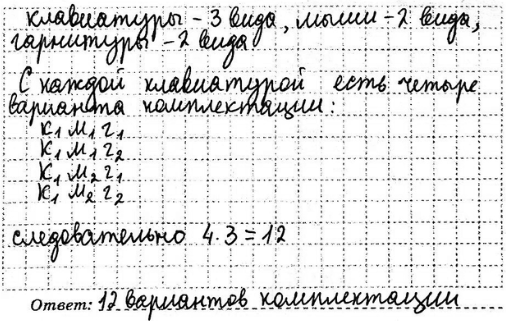 клавиатуры - 3 вида, мыши - 2 вида,
гарнитуры - 2 вида
С каждой клавиатурой есть четыре
варианта комплектации:
К₁ М₁ г₁
К₁ М₁ г₂
К₁ М₂ г₁
К₁ М₂ г₂
следовательно 4·3=12
Ответ: 12 вариантов комплектации